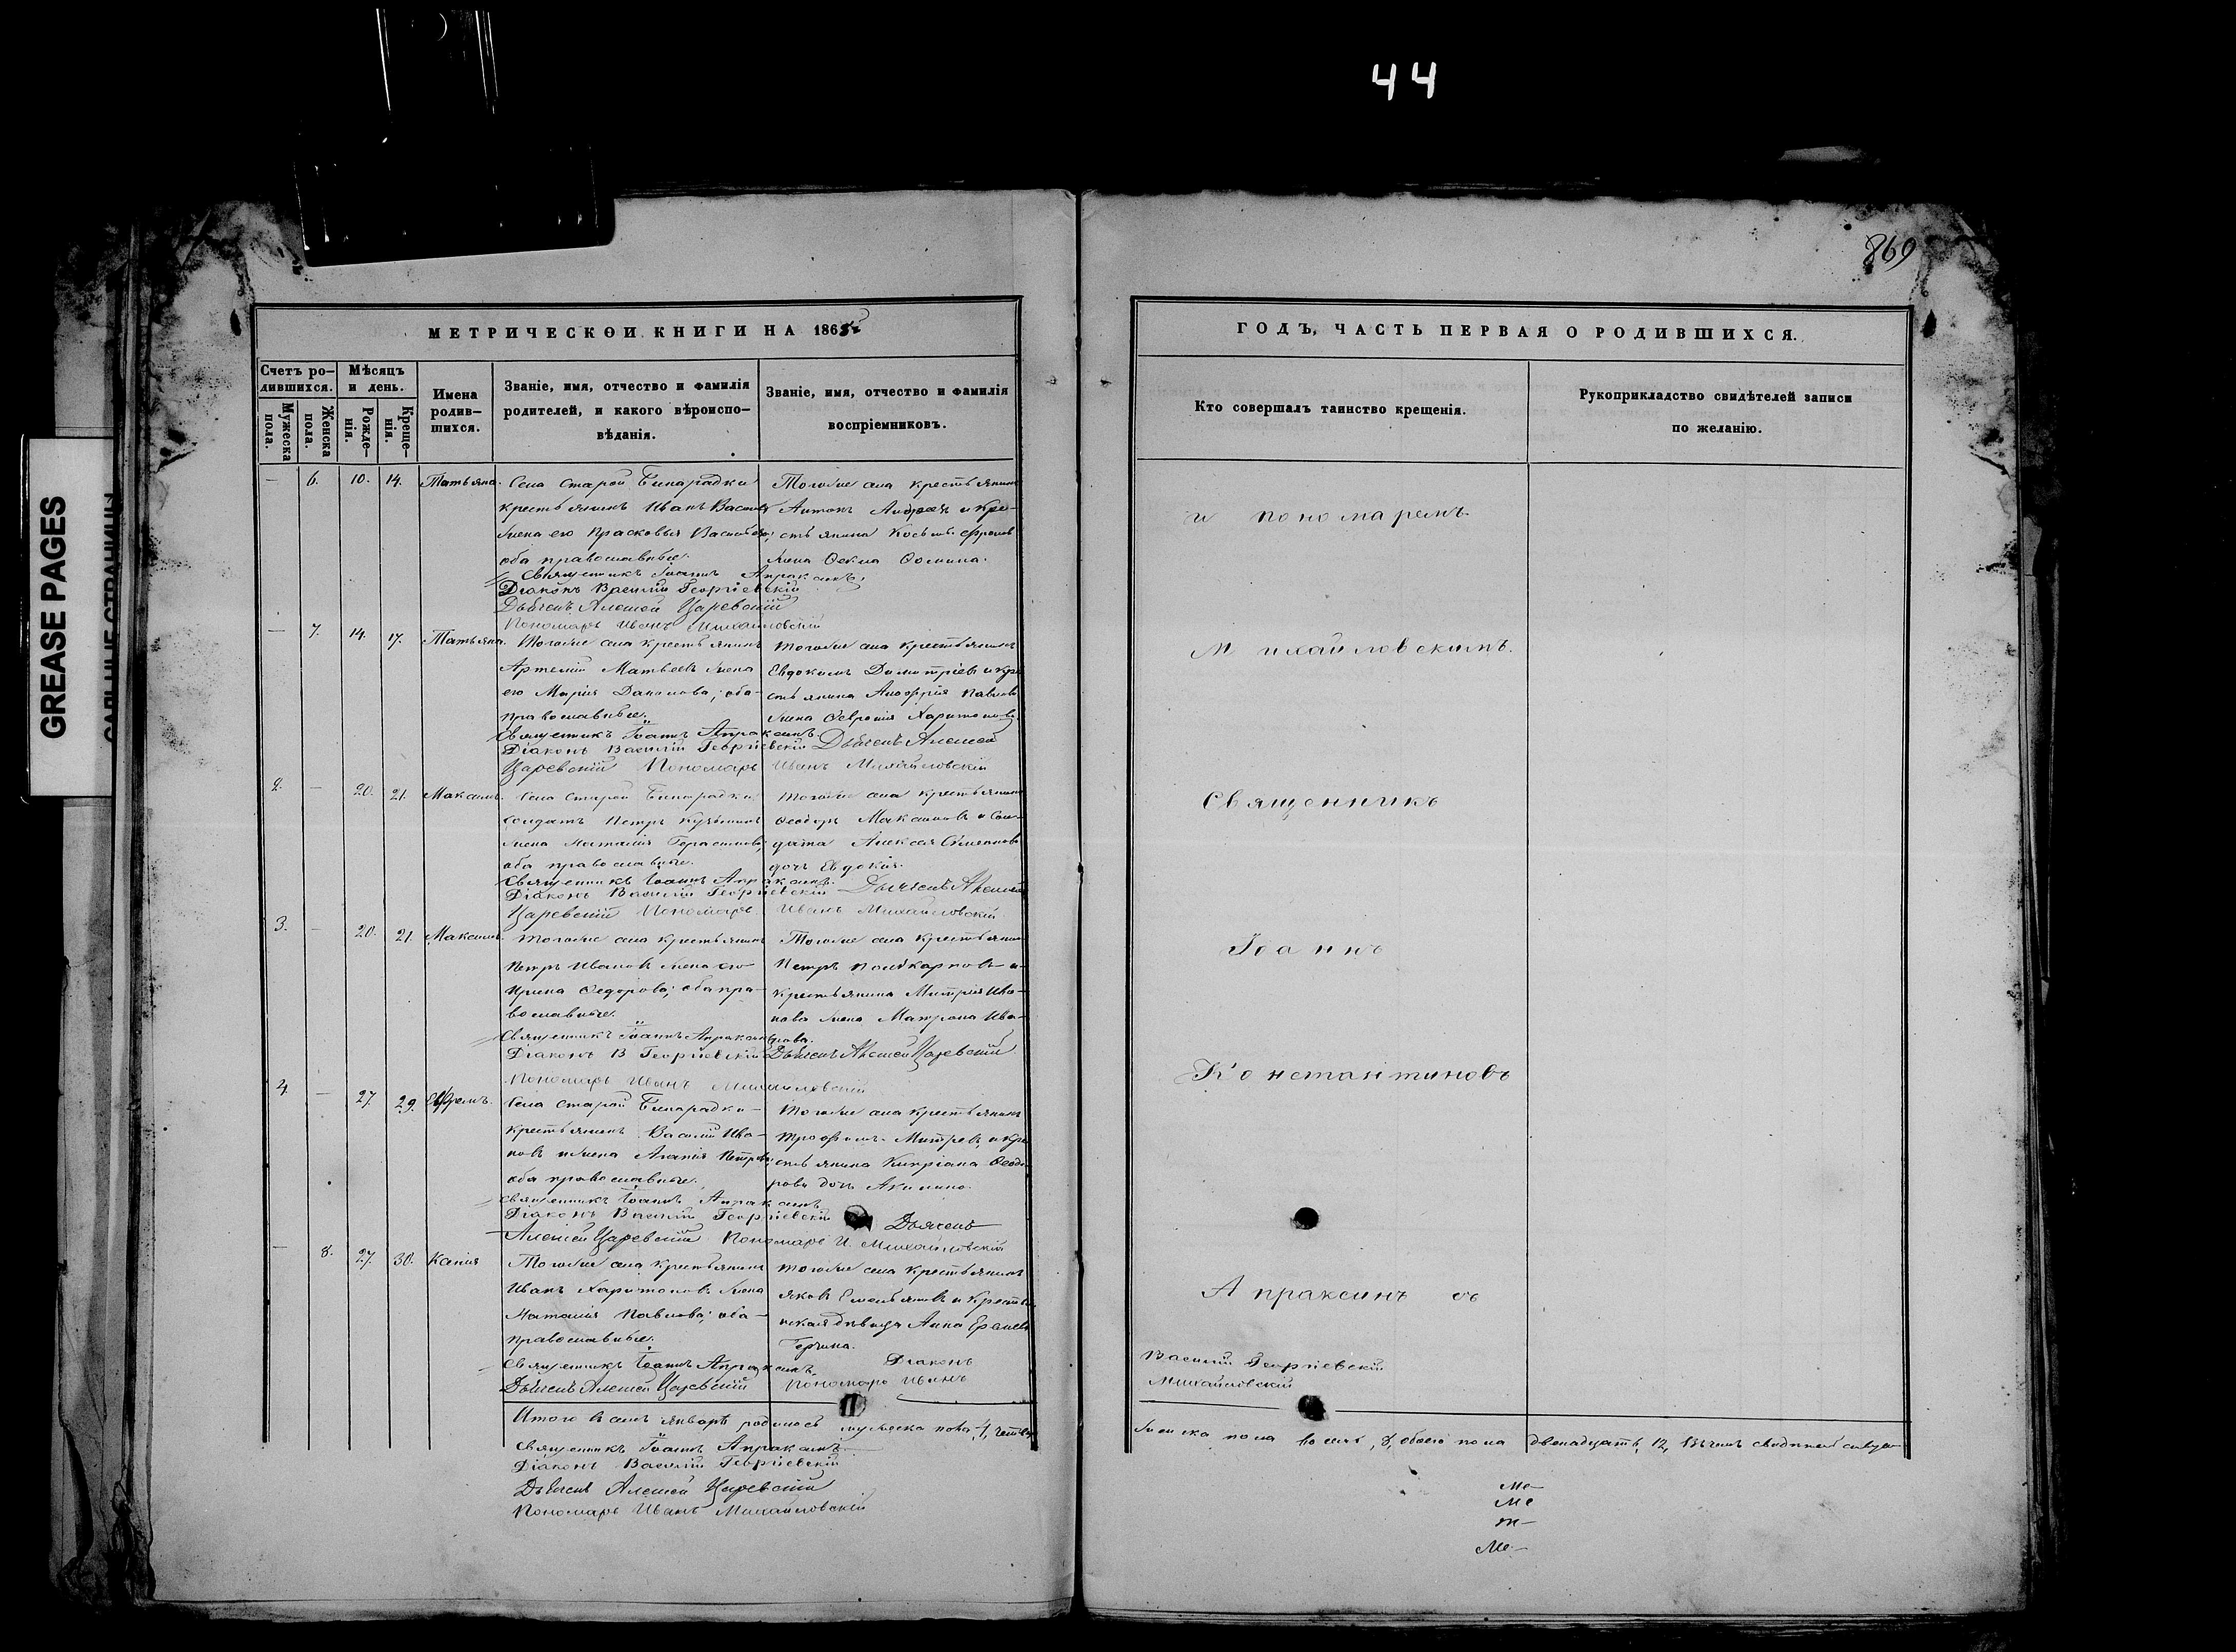 44
869
GREASE PAGES
МЕТРИЧЕСКОИ КНИГИ НА 1865й
Счетъ ро-
дившихся.
Мужеска
пола.
Женска
пола.
Мѣсяцъ
и день.
Рожде-
нія.
Креще-
нія.
Имена
родив-
шихся.
Званіе, имя, отчество и фамилія
родителей, и какого вѣроиспо-
вѣданія.
Званіе, имя, отчество и фамилія
воспріемниковъ.
— 6. 10. 14. Татьяна.
Села Старой Бинарадки
крестьянинъ Иванъ Васильевъ
жена его Прасковья Васильева;
оба православные.
Священникъ Іоаннъ Апраксинъ.
Діаконъ Василій Георгіевскій
Дьячекъ Алексей Царевскій
Пономарь Иванъ Михайловскій
Тогоже села крестьянинъ
Антонъ Андреевъ и кре-
стьянина Козьмы
жена Фекла Фомина.
— 7. 14. 17. Татьяна.
Тогоже села крестьянинъ
Артемій Матвеевъ жена
его Марія ; оба
православные.
Священникъ Іоаннъ Апраксинъ
Діаконъ Василій Георгіевскій Дьячекъ Алексей
Царевскій Пономарь Иванъ Михайловскій
Тогоже села крестьянинъ
Евдокимъ Димитріевъ и кре
стьянина Павлова
жена Харитонова.
2. — 20. 21. Максимъ.
Села Старой Бинарадки
солдатъ Петръ
жена Наталія Герасимова;
оба православные.
Священникъ Іоаннъ Апраксинъ.
Діаконъ Василій Георгіевскій Дьячекъ Алексей
Царевскій Пономарь Иванъ Михайловскій
Тогоже села крестьянинъ
Феодоръ Максимовъ и Сол-
дата Алексея
дочь Евдокія.
3. — 20. 21. Максимъ.
Тогоже села крестьянинъ
Петръ Ивановъ жена его
Ирина Федорова; оба пра-
вославные.
Священникъ Іоаннъ Апраксинъ
Діаконъ В Георгіевскій Дьячекъ Алексей Царевскій
Пономарь Иванъ Михайловскій
Тогоже села крестьянинъ
Петръ Поликарповъ и
крестьянина Митрія Ива-
нова жена Матрона Ива-
нова.
4. — 27. 29. Ефремъ.
Села Старой Бинарадки
крестьянинъ Василій Ива-
новъ жена Агапія Петрова;
оба православные.
Священникъ Іоаннъ Апраксинъ
Діаконъ Василій Георгіевскій Дьячекъ
Алексей Царевскій Пономарь И. Михайловскій
Тогоже села крестьянинъ
Трофимъ Митревъ и кре
стьянина Кипріана Феодо-
рова дочь Акилина.
— 8. 27. 30. Ксенія
Тогоже села крестьянинъ
Иванъ Харитоновъ жена
Наталія Павлова; оба
православные.
Священникъ Іоаннъ Апраксинъ Діаконъ
Дьячекъ Алексей Царевскій Пономарь Иванъ
Тогоже села крестьянинъ
Яковъ Емельяновъ и Кресть-
нская девица Анна
Итого въ семъ январѣ родилось мужеска пола 4, четыре
Священникъ Іоаннъ Апраксинъ
Діаконъ Василій Георгіевскій
Дьячекъ Алексей Царевскій
Пономарь Иванъ Михайловскій
ГОДЪ, ЧАСТЬ ПЕРВАЯ О РОДИВШИХСЯ.
Кто совершалъ таинство крещенія.
Рукоприкладство свидѣтелей записи
по желанію.
и пономаремъ
Михайловскимъ.
Священникъ
Іоаннъ
Константиновъ
Апраксинъ съ
Василій Георгіевскій
Михайловскій
женска пола восемь, 8, обоего пола двенадцать, 12,
Ме-
Ме
т-
Ме-